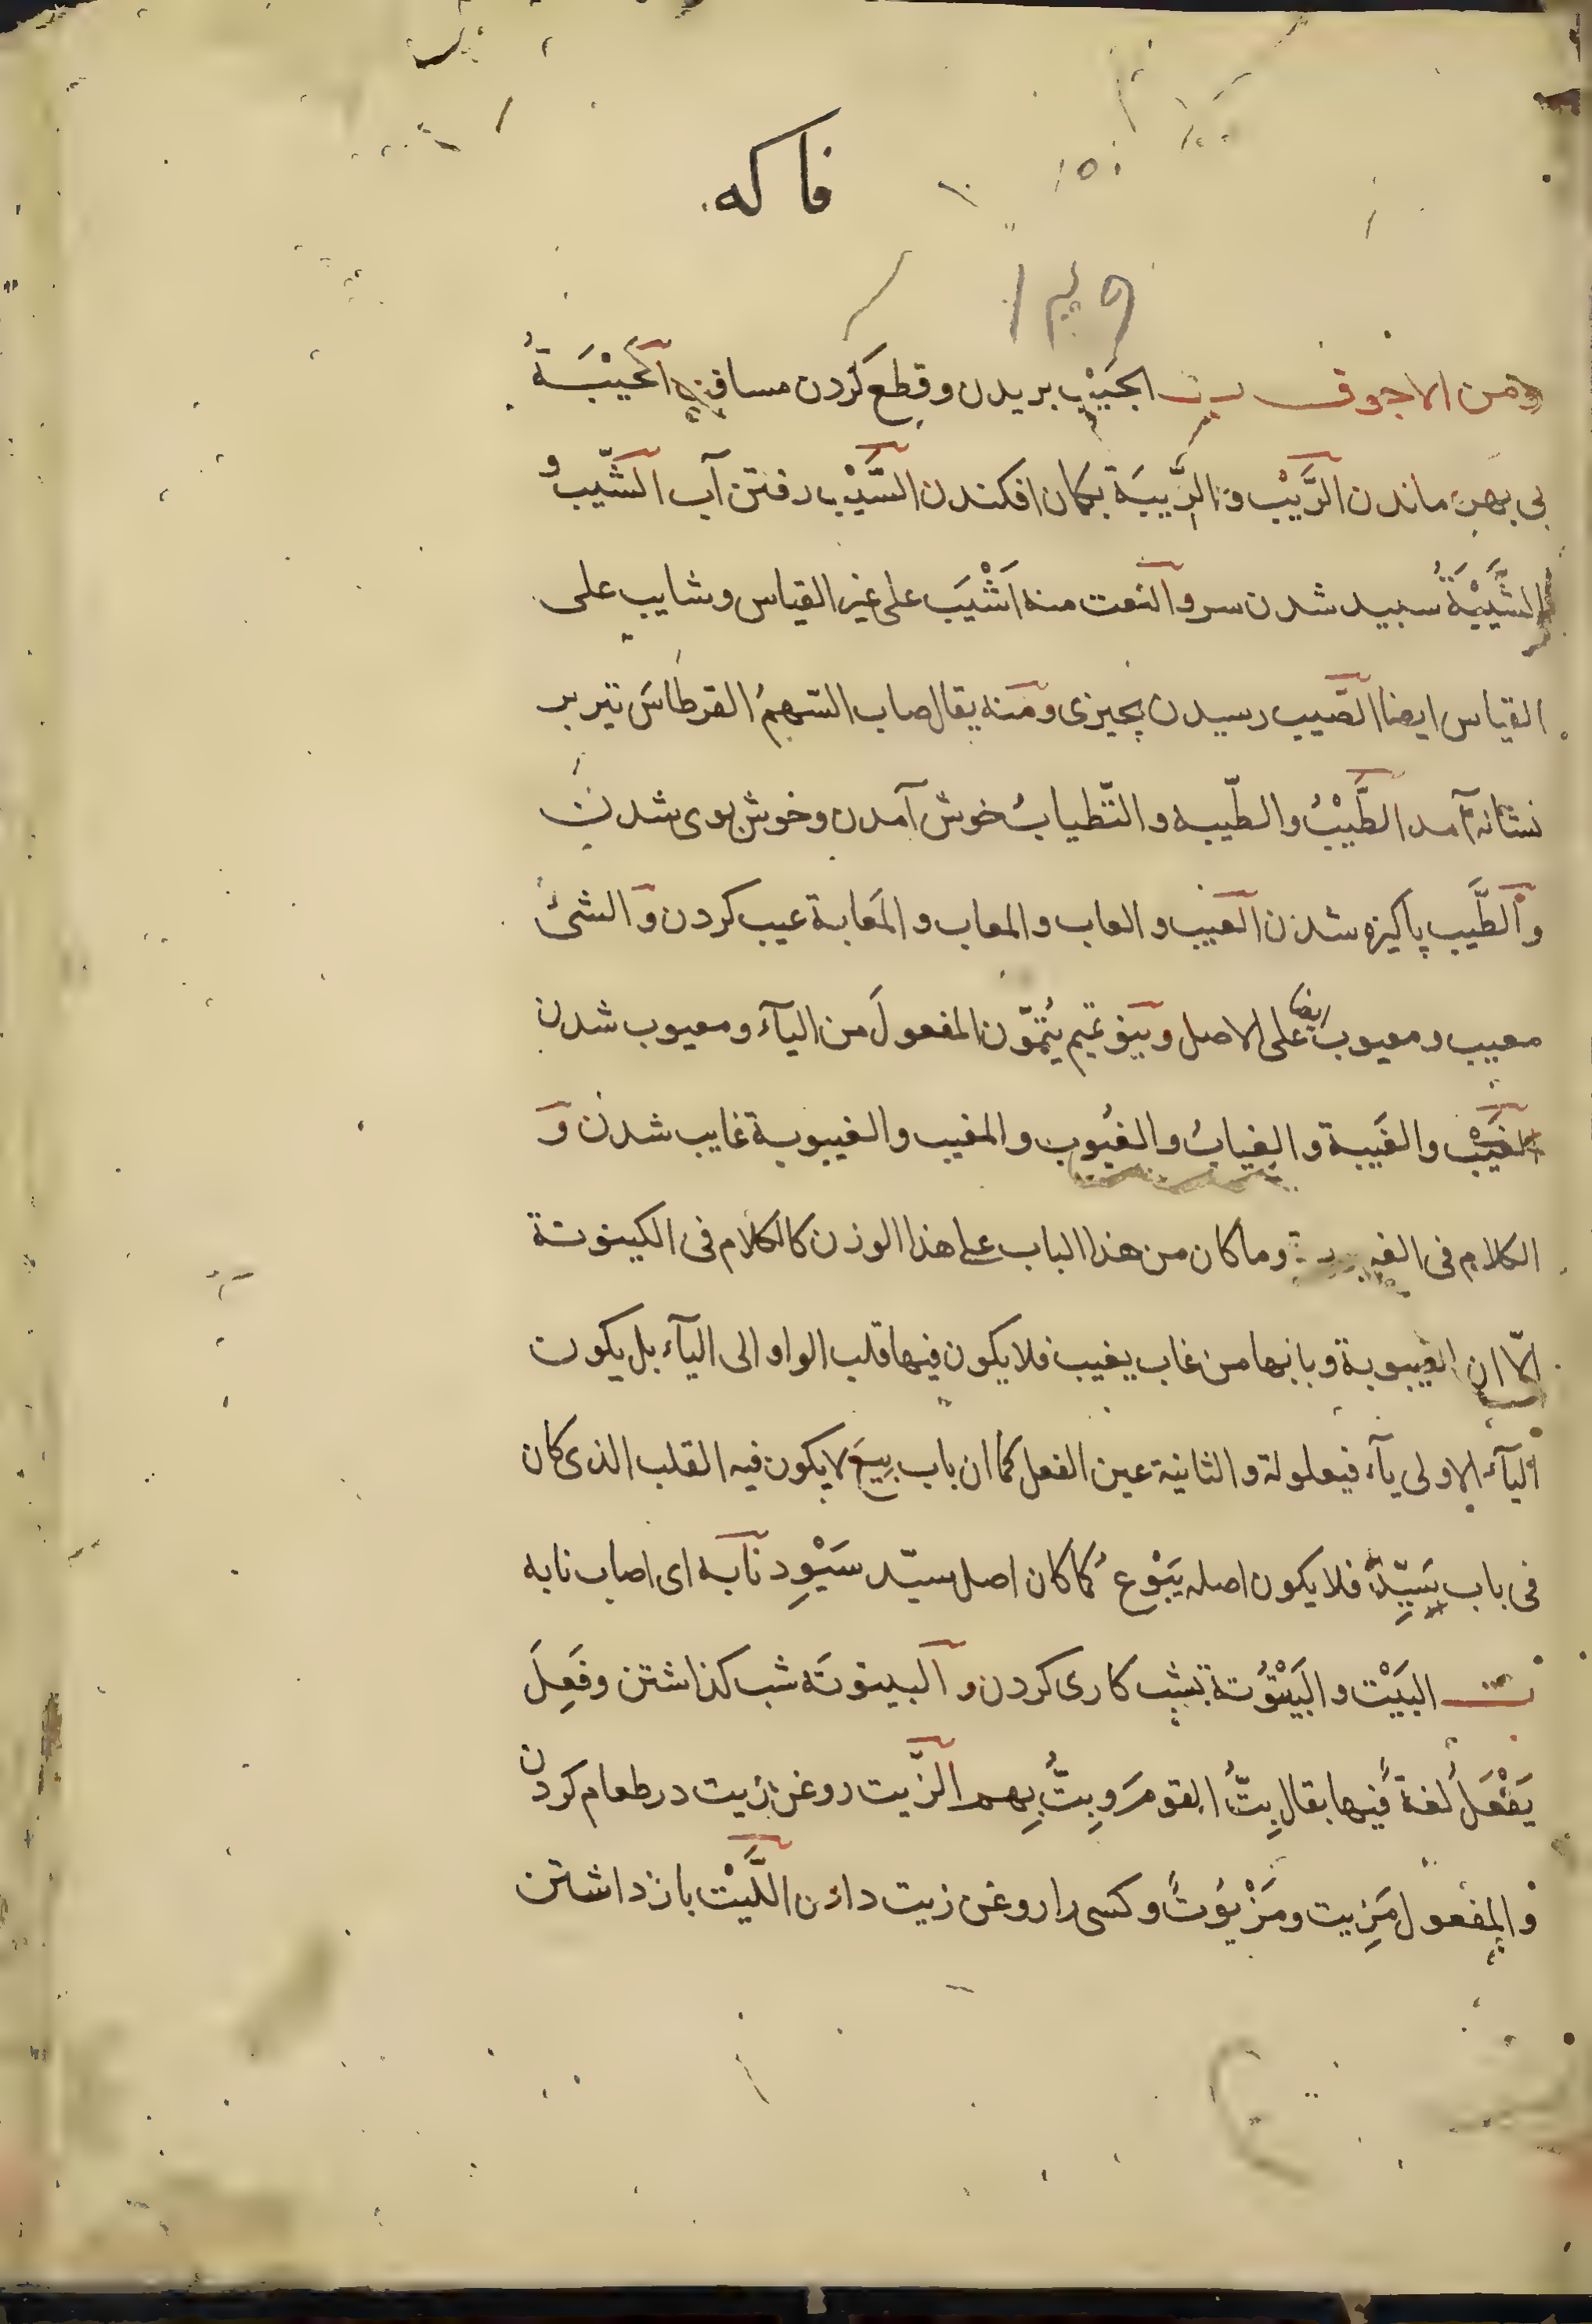 فاكه
ومن الاجوف ب الجَيْب بريدن وقطع كردن مسافة الخَيْبَةُ
بى بهره ماندن الرَّيْب و الرِّيبَة بكمان افكندن السَّيْب رفتن آب الشَّيب و
الشَّيْبَةُ سبيد شدن سر و النعت منه اَشْيَب على غير القياس وشايب على
القياس ايضا الصَّيب رسيدن بچيزى ومنه يقال صاب السّهمُ القرطاسَ تير بر
نشانه آمد الطَّيْبُ والطّيبه و التّطيابُ خوش آمدن و خوش بوى شدن
و الطَّيب پاكيزه شدن العيب و العاب و المعاب و المَعابة عيب كردن و الشئُ
معيب و معيوب ايضا على الاصل و بنو تميم يُتمّون المفعولَ من اليآء و معيوب شدن
الغَيْب والغَيبة و الغِيابُ و الغُيُوب و المغيب و الغيبوبة غايب شدن وَ
الكلام فى وما كان من هذا الباب على هذا الوزن كالكلام فى الكينونة
الّا ان الغيبوبة و بابها من غاب يغيب فلا يكون فيها قلب الواو الى اليآء بل يكون
اليآء الاولى يآء فيعلولة و الثانية عين الفعل كما ان باب بيع لا يكون فيه القلب الذى كان
فى باب سَيِّد فلا يكون اصله يَبْوِع كما كان اصل سيّد سَيْوِد نابه اى اصاب نابه
ت البَيْت و البَيْتُوتة بشب كارى كردن و البيتوتَه شب كذاشتن وفَعِلَ
يَفْعَلُ لغةً فيها يقال بِتُّ القومَ و بِتُّ بِهم الزّيت روغن زيت در طعام كردن
و المفعول مَزِيت و مَزْيُوتٌ و كسى را روغن زيت دادن اللَّيْت باز داشتن